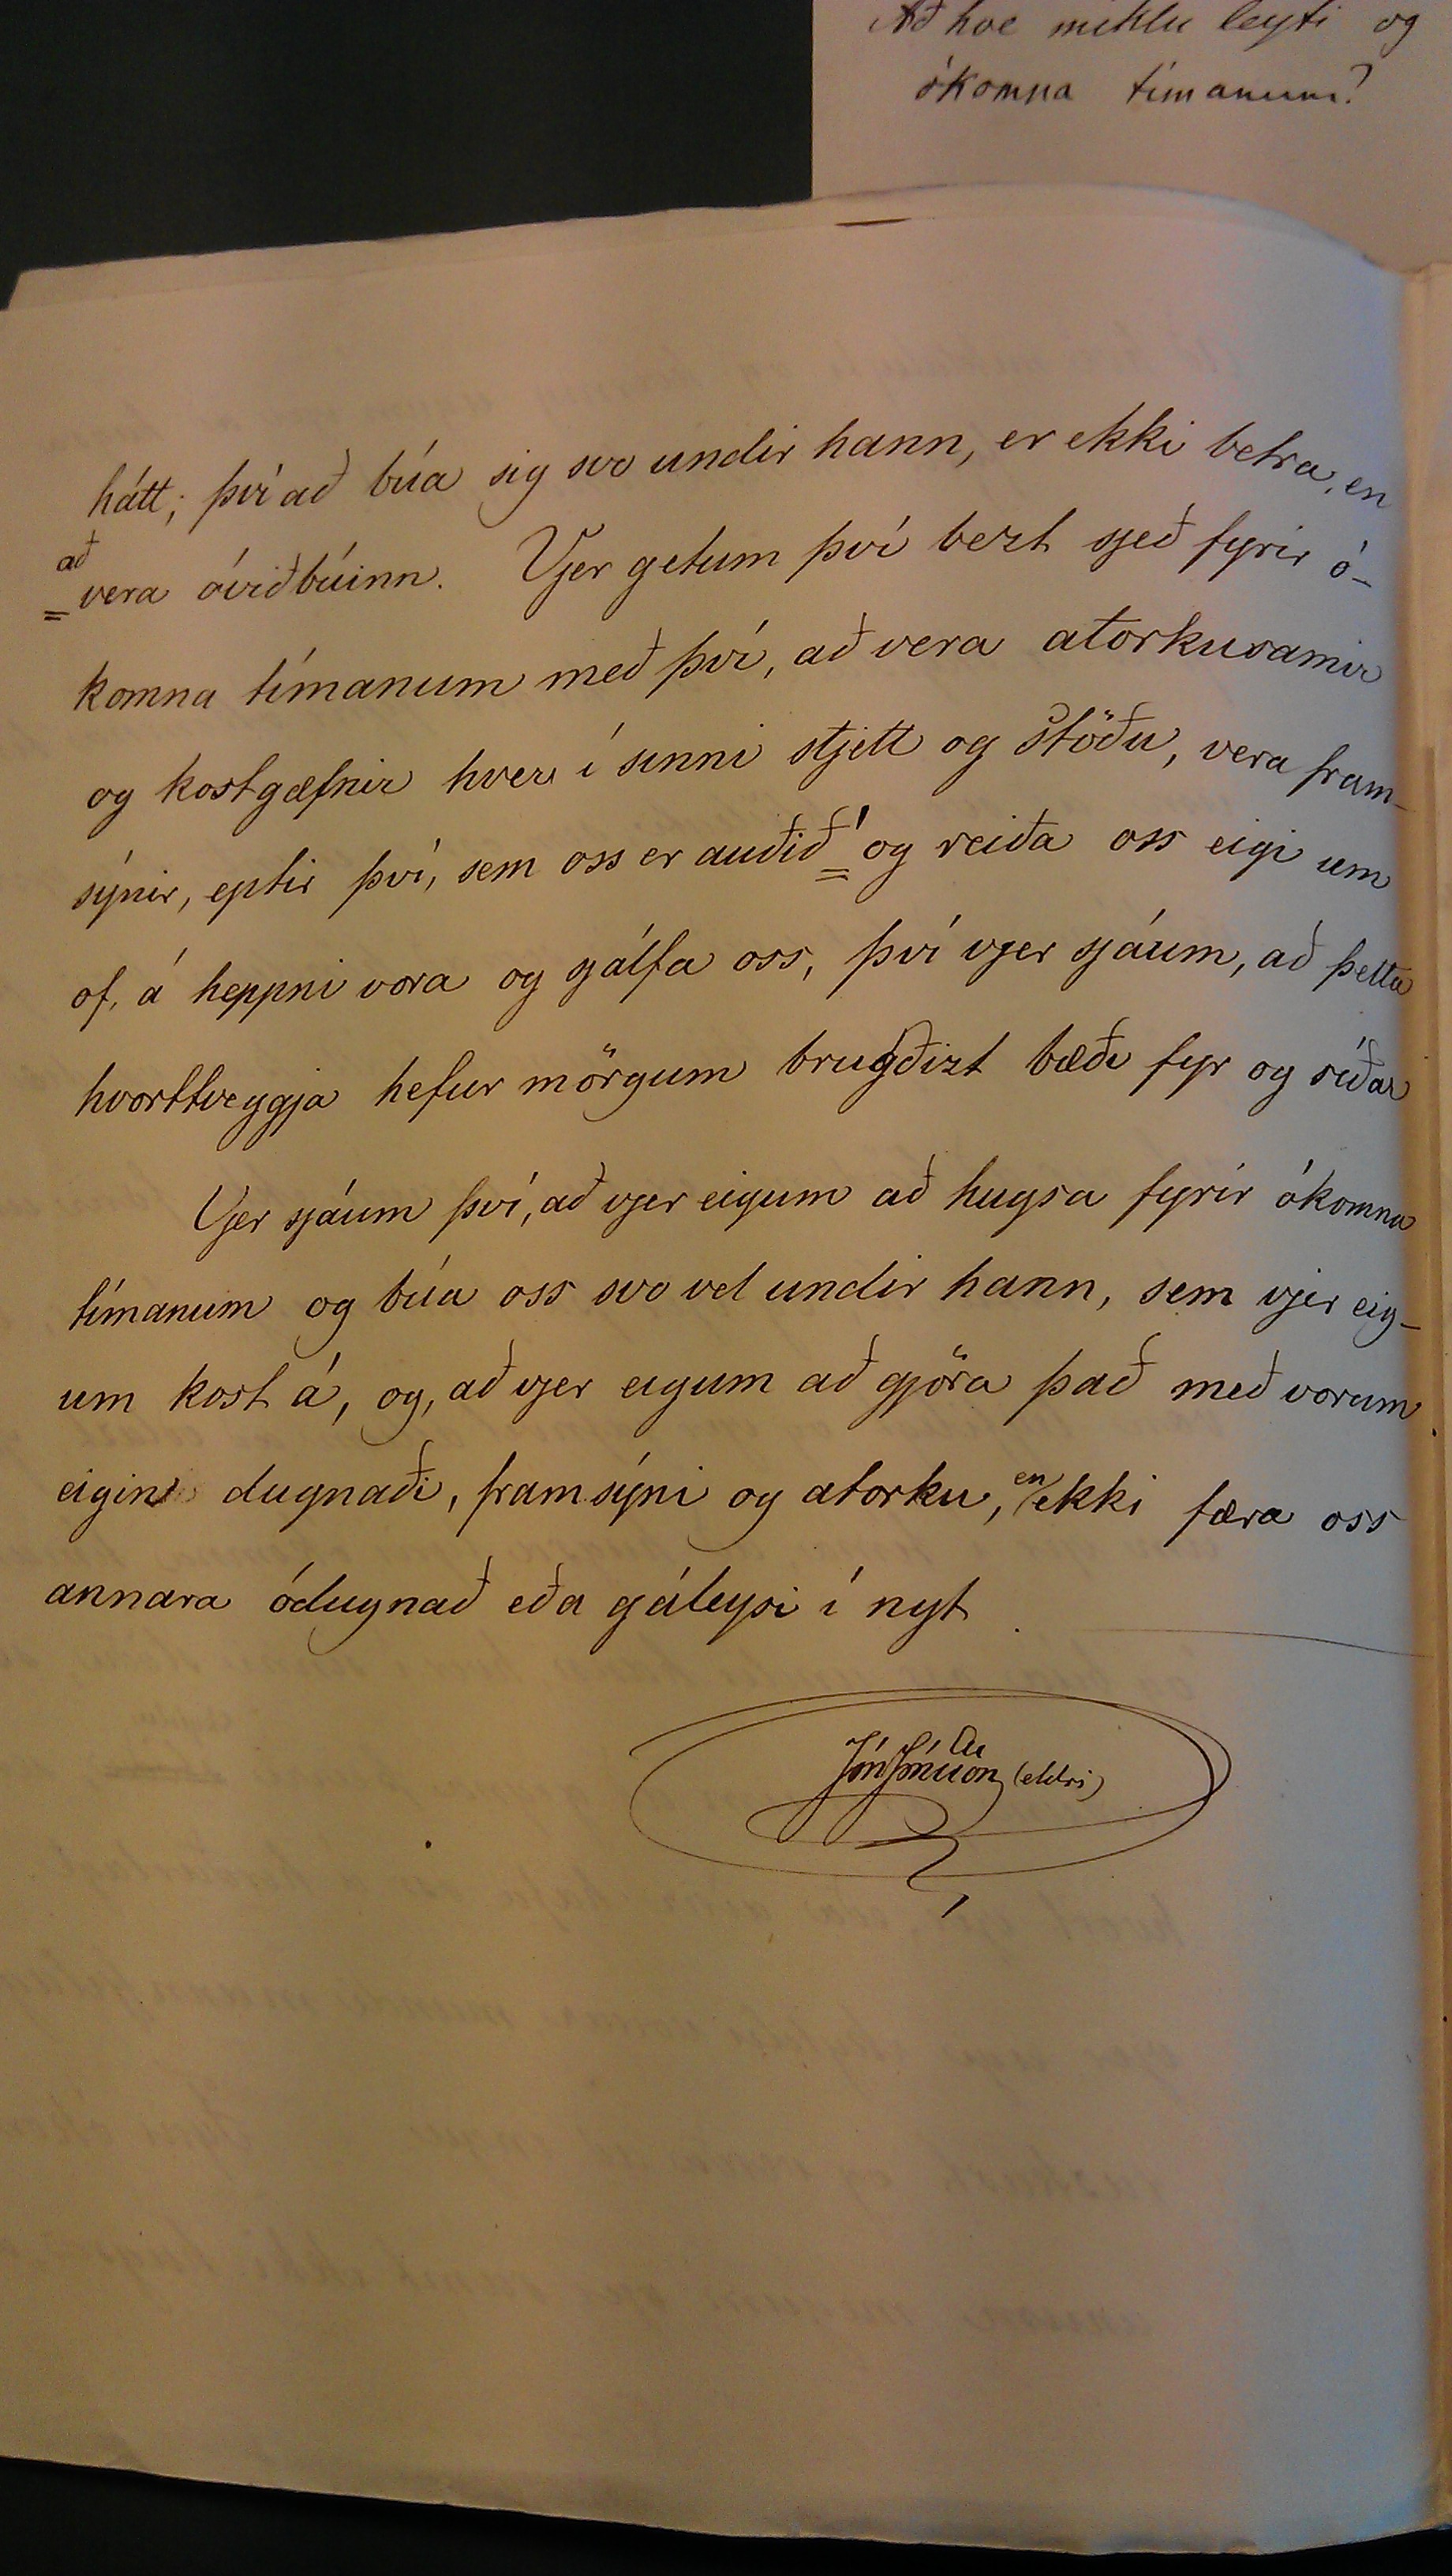 Að hve miklu leyti og
ókomna tímanum?
hátt; því að búa sig svo undir hann, er ekki betra, en
að
vera óviðbúinn. Vjer getum því bezt sjeð fyrir ó-
komna tímanum með því, að vera atorkusamir
og kostgæfnir hver í sinni stjett og stöðu, vera fram-
sýnir, eptir því, sem oss er auðið og reiða oss eigi um
of, á heppni vora og gálfa oss, því vjer sjáum, að þetta
hvorttveggja hefur mörgum brugðizt bæði fyr og síðar
Vjer sjáum því, að vjer eigum að hugsa fyrir ókomna
tímanum og búa oss svo vel undir hann, sem vjer eig-
um kost á, og, að vjer eigum að gjöra það með vorum
eigin dugnaði, framsýni og atorku, en ekki færa oss
annara ódugnað eða gáleysi í nyt.
Jón Jónsson (eldri)